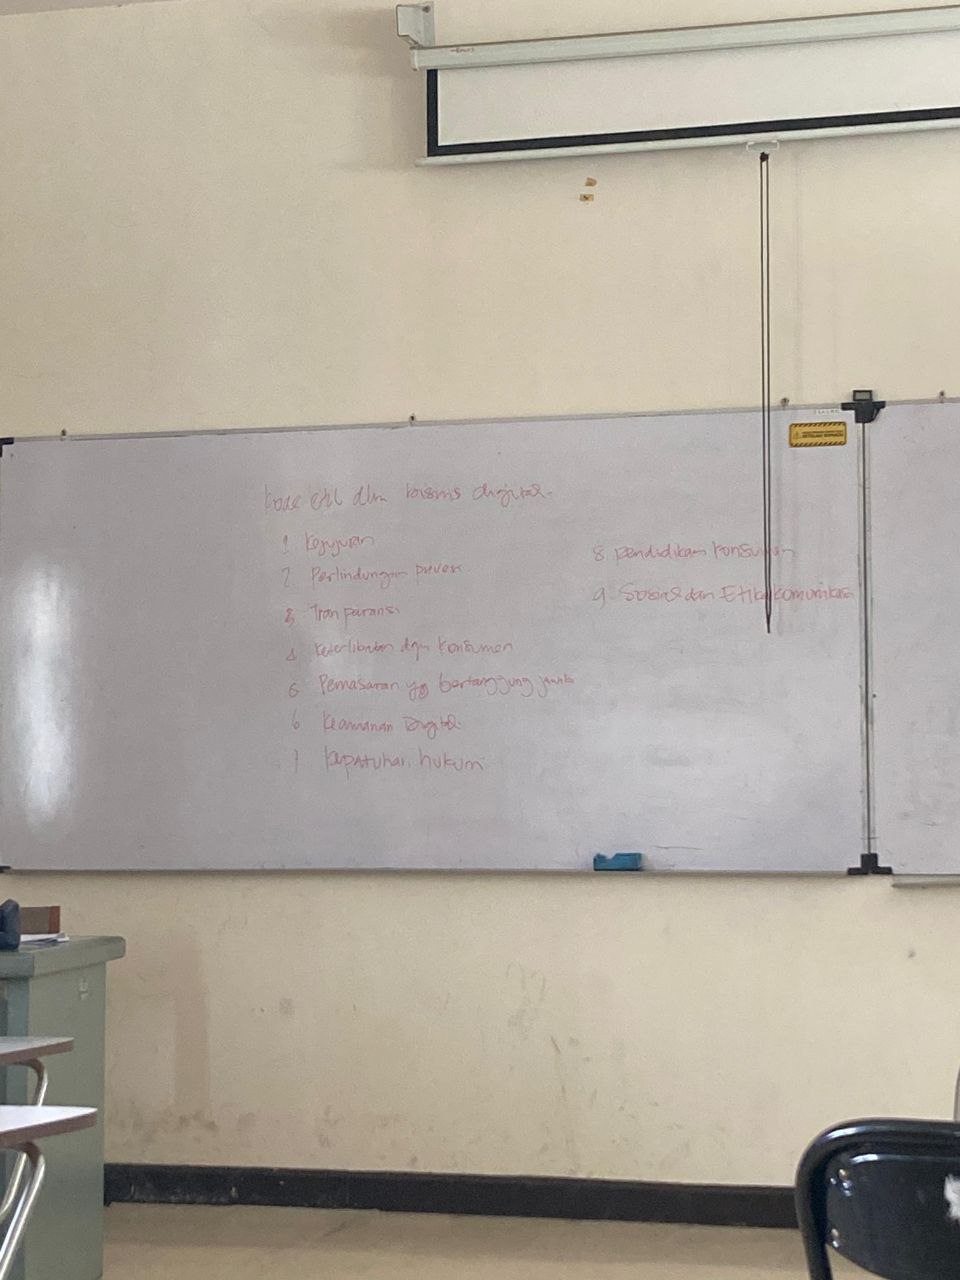 Kode etik dlm bisnis digital.
1 Kejujuran
2 Perlindungan privasi
3 Tranparansi
4 Keterlibatan dgn konsumen
5 Pemasaran yg bertanggung jawab
6 Keamanan Digital
7 kepatuhan hukum
8 Pendidikan konsumen
9 Sosial dan Etika komunikasi